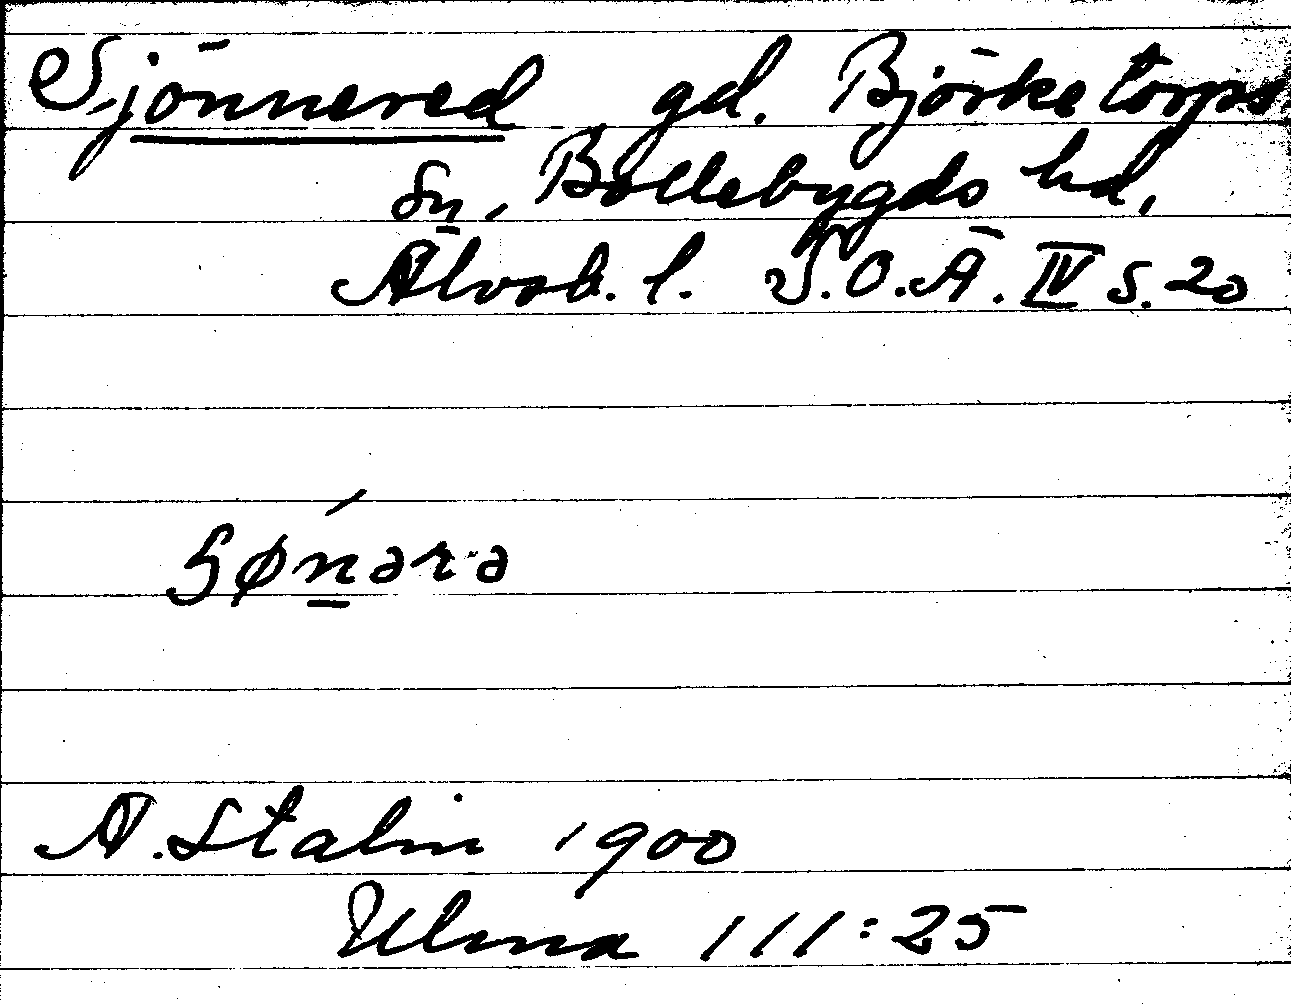 Sjönnered gd. Björketorps
sn, Bollebygds hd,
Älvsb. l. S.O.Ä. IV s. 20
ʃøṉərə
A. Stalin 1900
Ulma 111:25